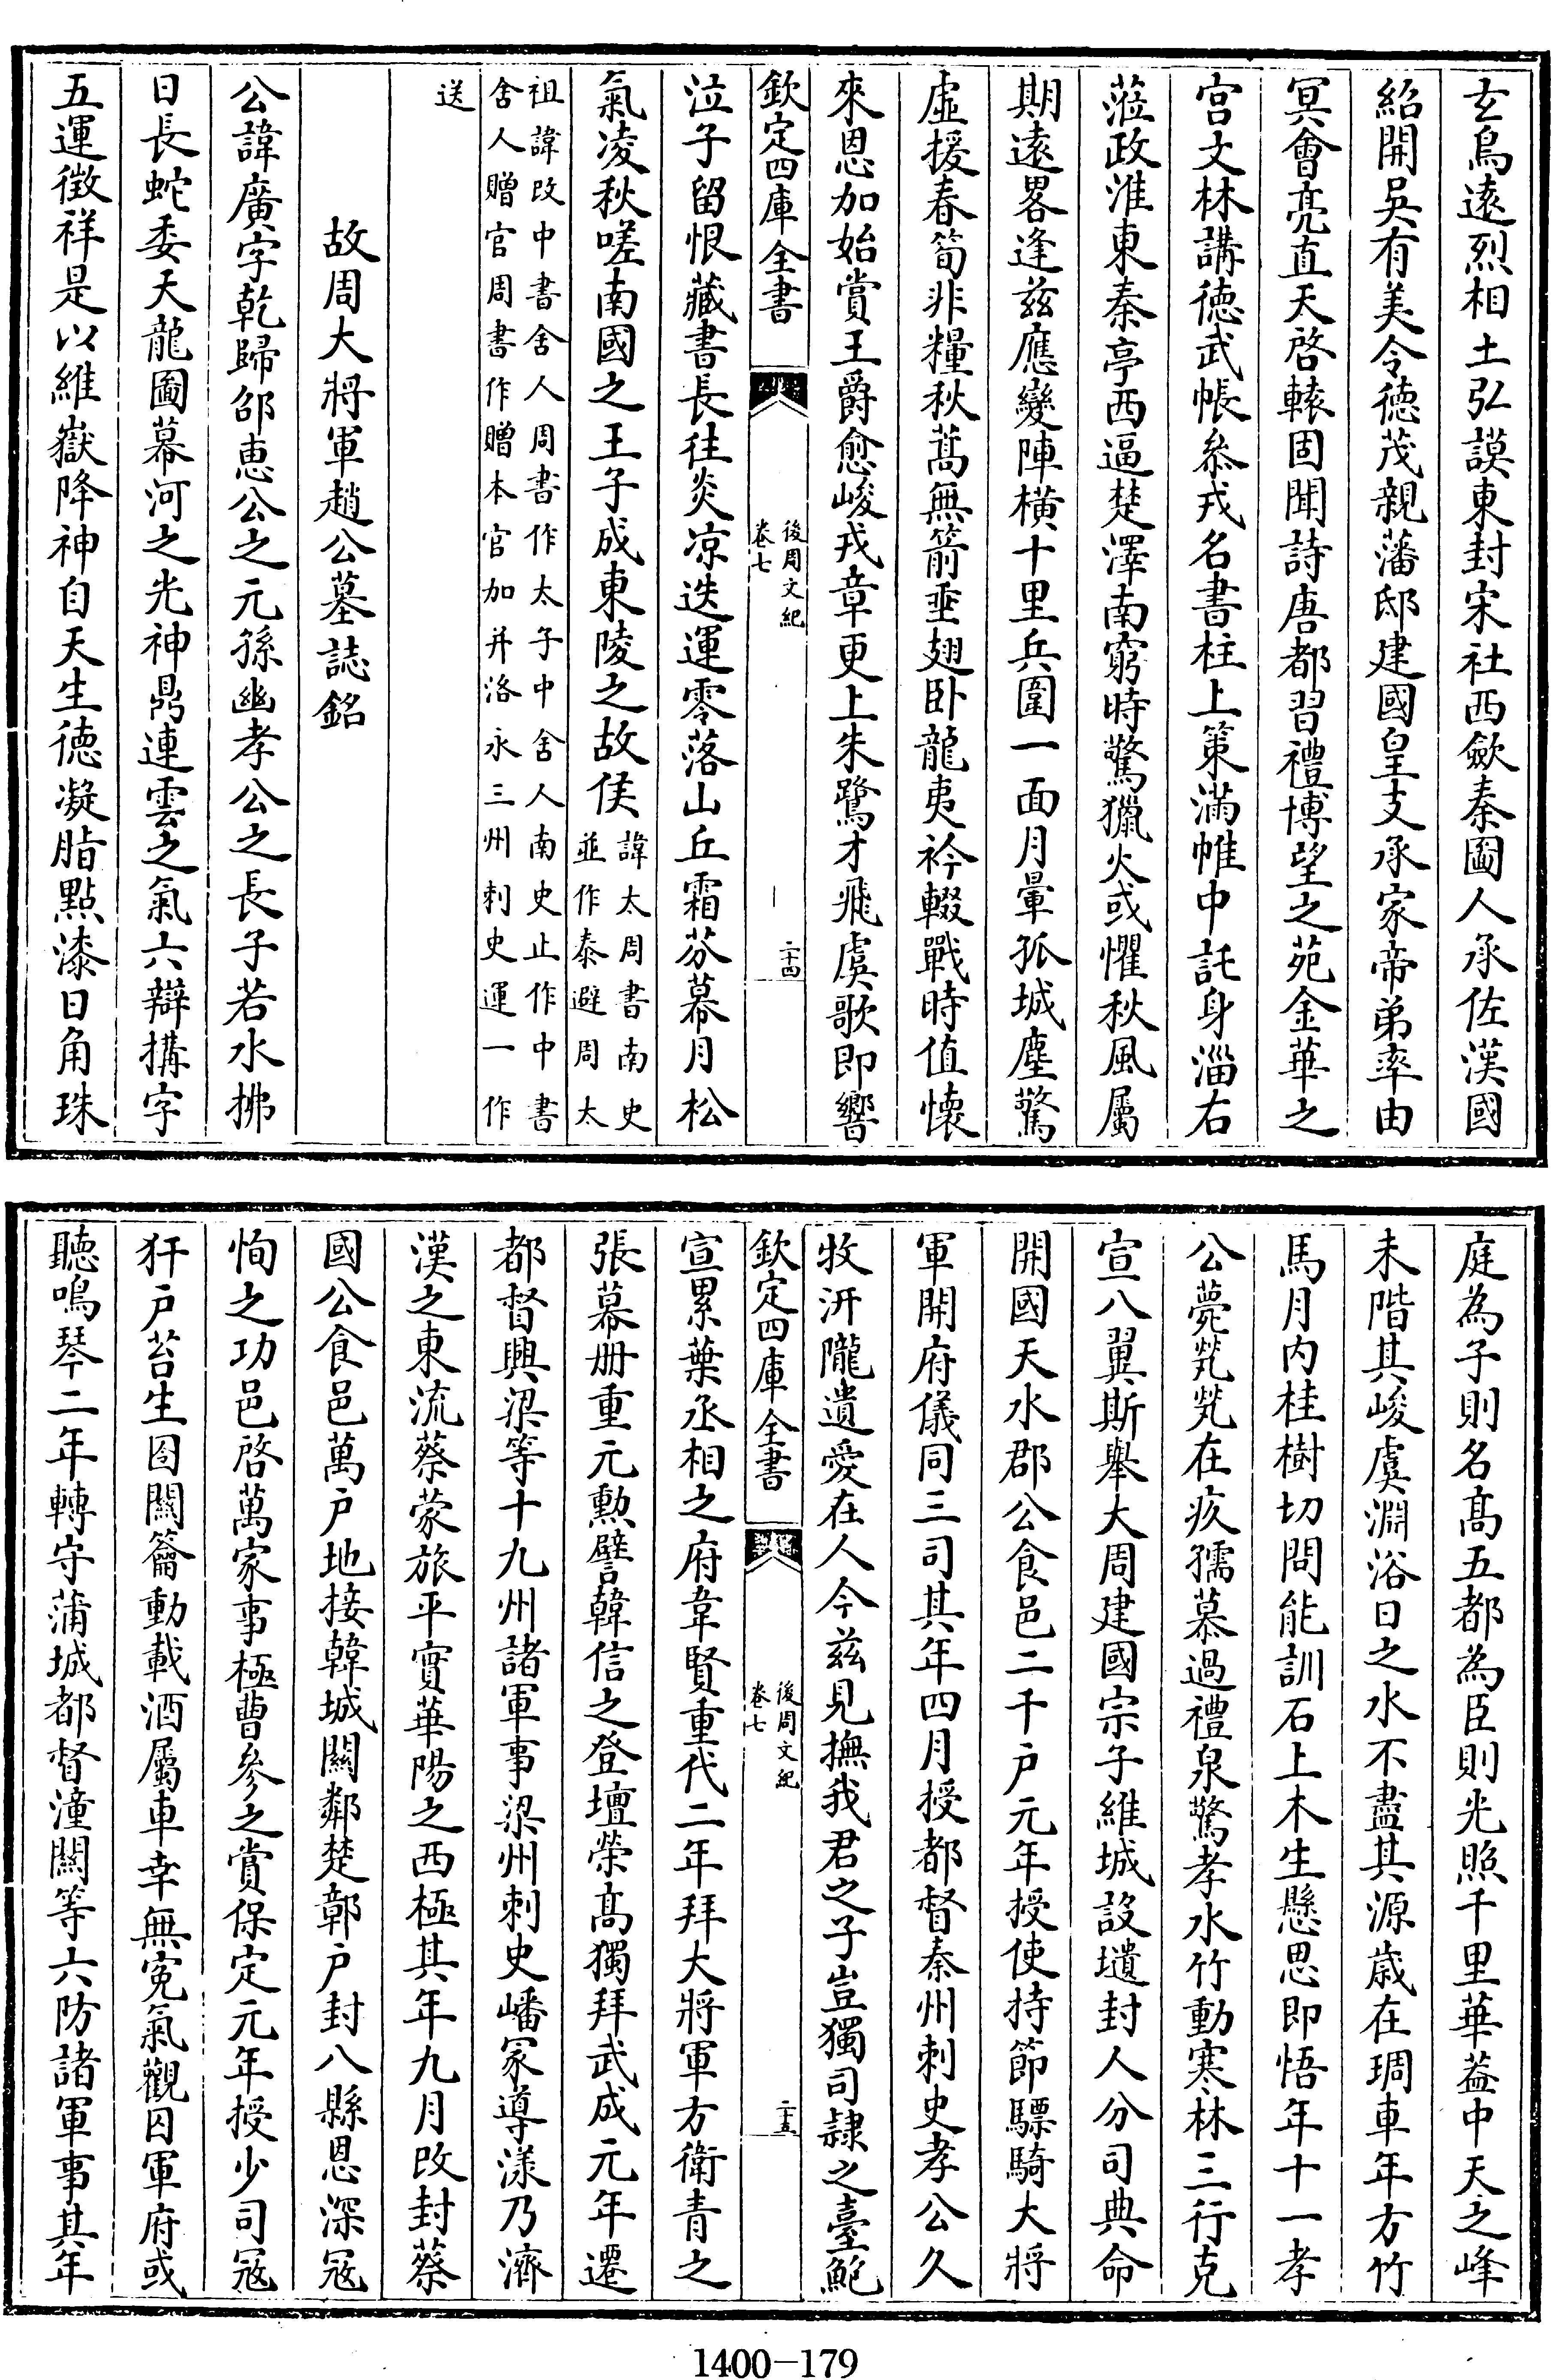 玄鳥遠烈相土弘謨東封宋社西歛秦圖人承佐漢國
紹開吳有美令徳茂親藩邸建國皇支承家帝弟率由
冥會亮直天啓轅固聞詩唐都習禮博望之苑金華之
宫文林講徳武帳叅戎名書柱上策滿帷中託身淄右
蒞政淮東秦亭西逼楚澤南窮時驚獵火或懼秋風屬
期遠畧逢兹應變陣橫十里兵圍一面月暈孤城塵驚
虛援春筍非糧秋蒿無箭垂翅卧龍夷衿輟戰時值懐
來恩加始賞王爵愈峻戎章更上朱鷺才飛虞歌即響
欽定四庫全書
後周文紀
卷七
二十四
泣子留恨藏書長往炎凉迭運零落山丘霜芬幕月松
氣凌秋嗟南國之王子成東陵之故侯
諱太周書南史
並作泰避周太
祖諱改中書舍人周書作太子中舍人南史止作中書
舍人贈官周書作贈本官加并洛永三州刺史運一作
送
故周大將軍趙公墓誌銘
公諱廣字乾歸邵惠公之元孫幽孝公之長子若水拂
日長蛇委天龍圖幕河之光神鼎連雲之氣六辯搆字
五運徵祥是以維嶽降神自天生徳凝脂點漆日角珠
庭為子則名髙五都為臣則光照千里華葢中天之峰
未階其峻虞淵浴日之水不盡其源歳在琱車年方竹
馬月内桂樹切問能訓石上木生懸思即悟年十一孝
公薨煢煢在疚孺慕過禮泉驚孝水竹動寒林三行克
宣八翼斯舉大周建國宗子維城設壝封人分司典命
開國天水郡公食邑二千户元年授使持節驃騎大將
軍開府儀同三司其年四月授都督秦州刺史孝公久
牧汧隴遺愛在人今兹見撫我君之子豈獨司隸之臺鮑
欽定四庫全書
後周文紀
卷七
二十五
宣累葉丞相之府韋賢重代二年拜大將軍方衛青之
張幕册重元勲譬韓信之登壇榮髙獨拜武成元年遷
都督興梁等十九州諸軍事梁州刺史嶓冢導漾乃濟
漢之東流蔡蒙旅平實華陽之西極其年九月改封蔡
國公食邑萬户地接韓城闗鄰楚鄣户封八縣恩深冦
恂之功邑啓萬家事極曹參之賞保定元年授少司冦
犴户苔生圄闗籥動載酒屬車幸無寃氣觀囚軍府或
聽鳴琴二年轉守蒲城都督潼闗等六防諸軍事其年
1400-179